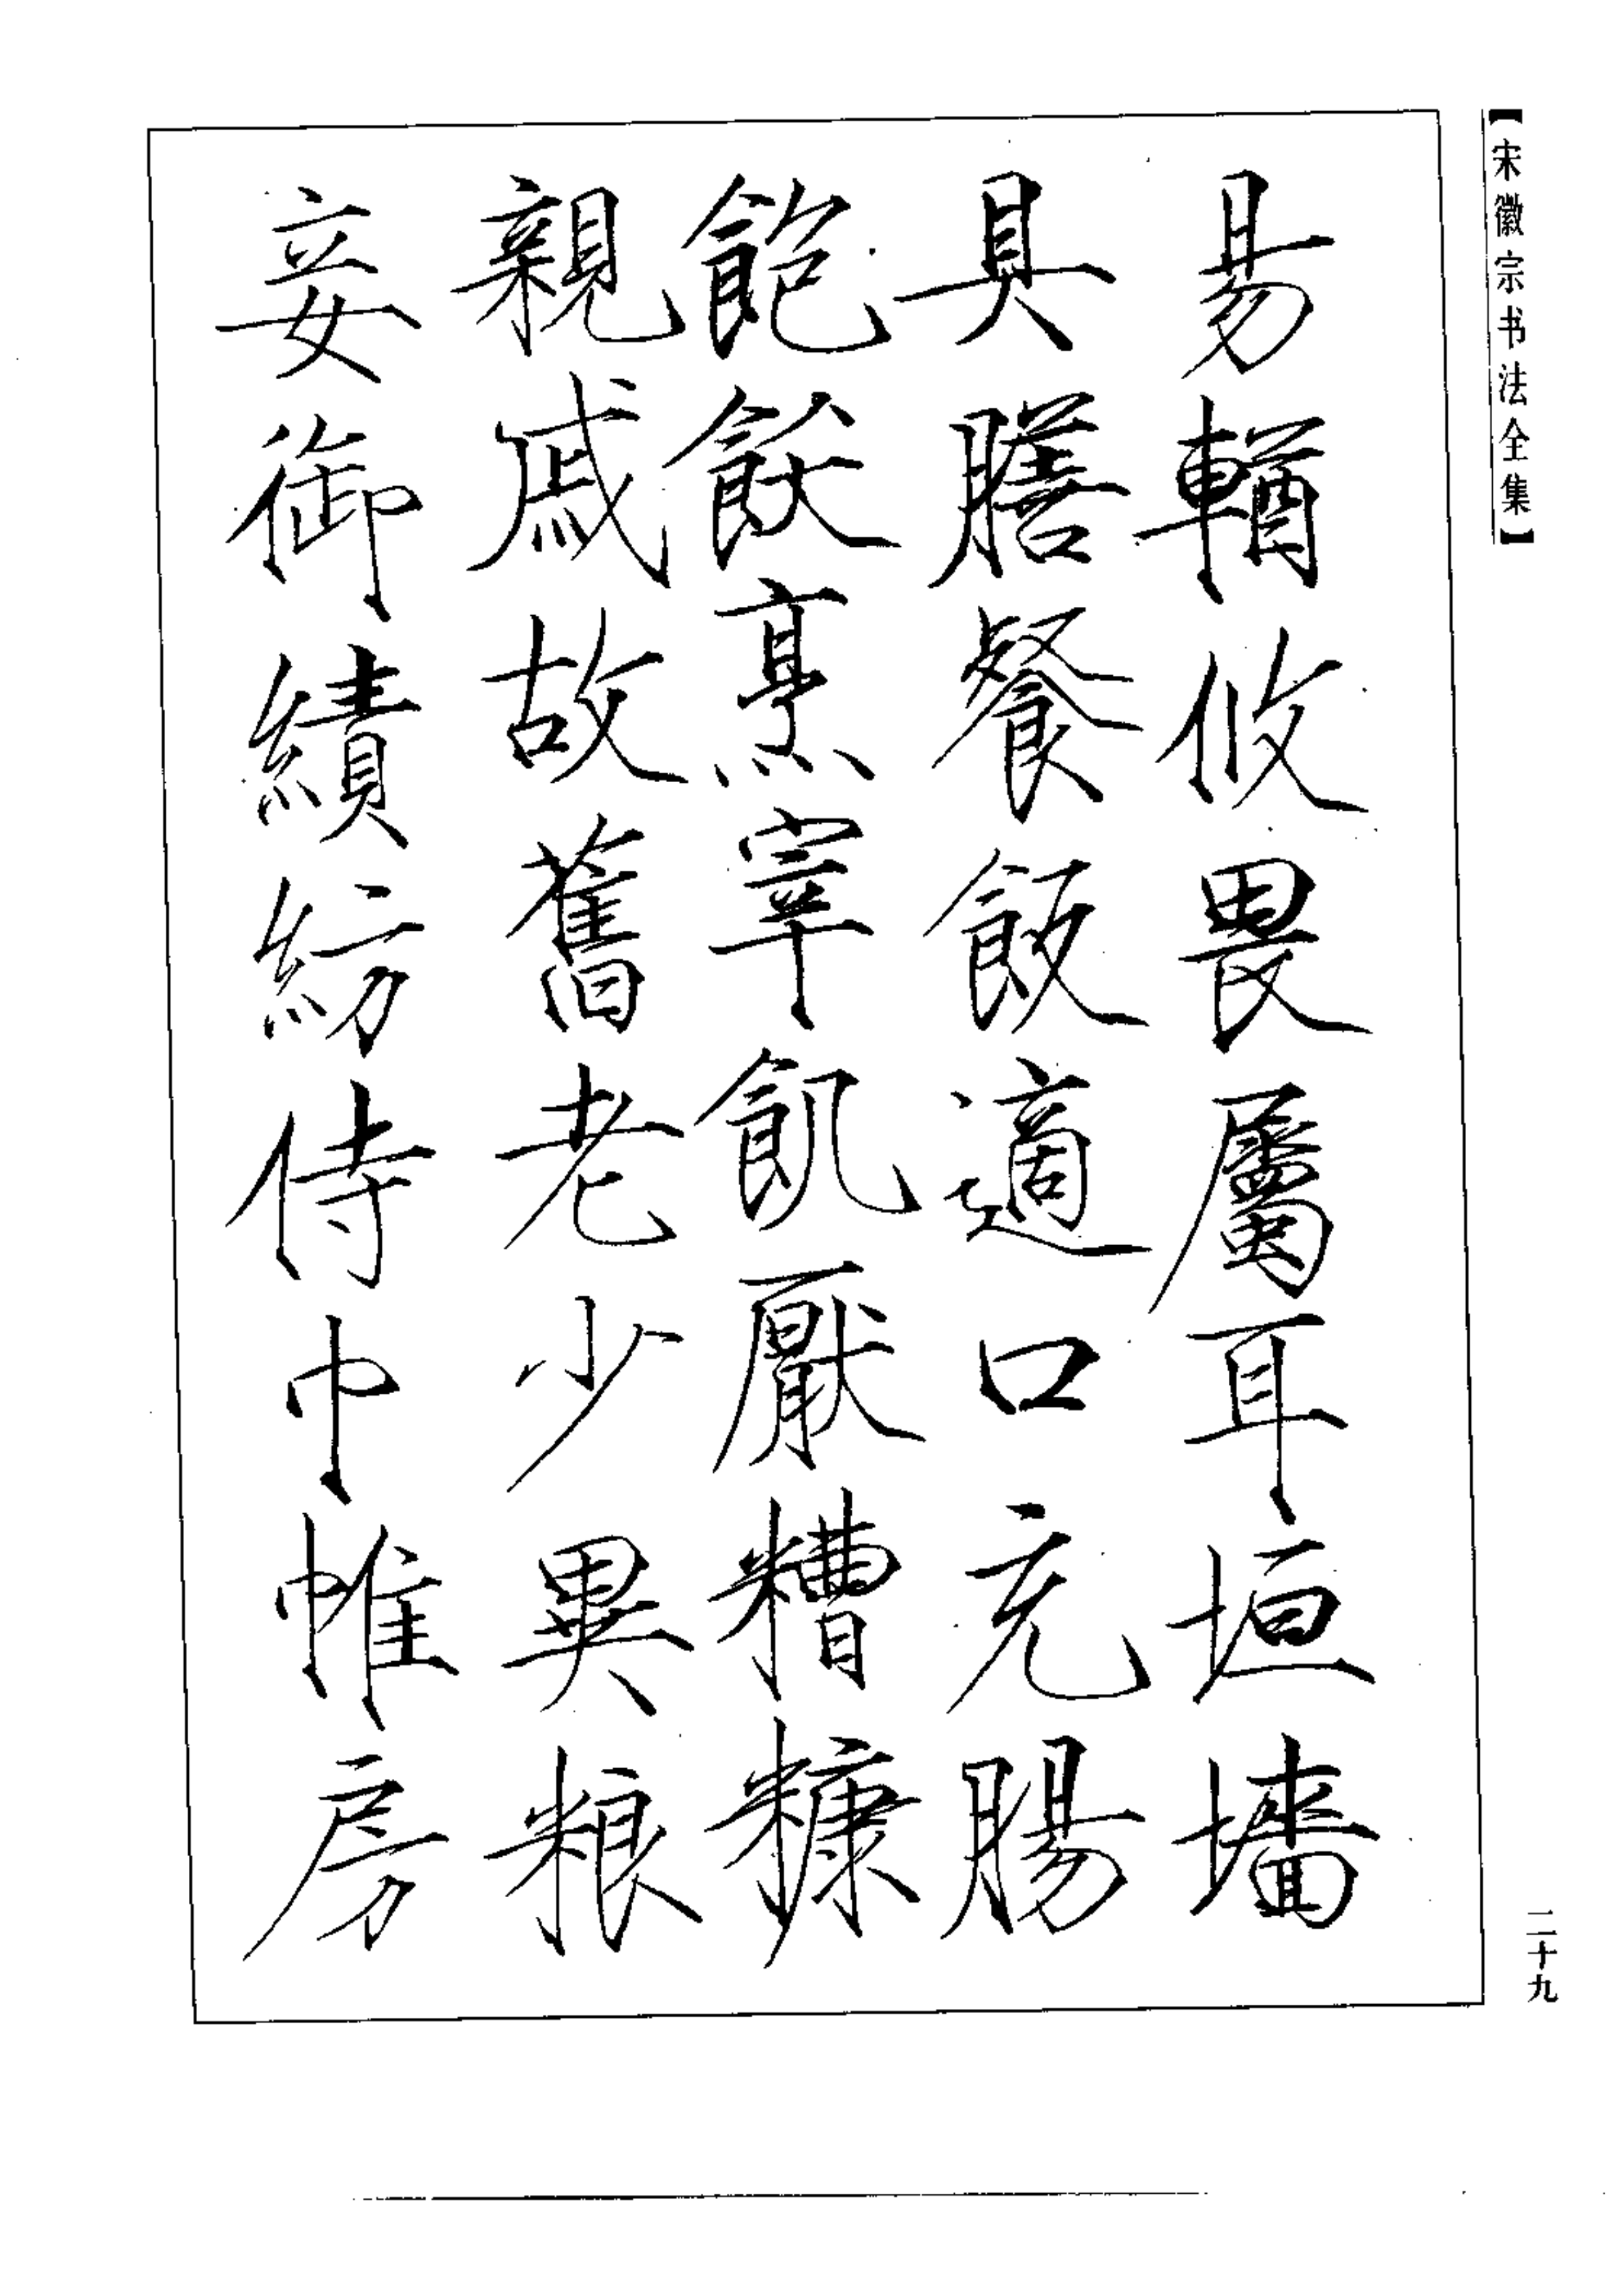 【宋徽宗书法全集】
易輶攸畏屬耳垣墻
具膳餐飯適口充腸
飽飫烹宰飢厭糟糠
親戚故舊老少異粮
妾御績紡侍巾帷房
二十九